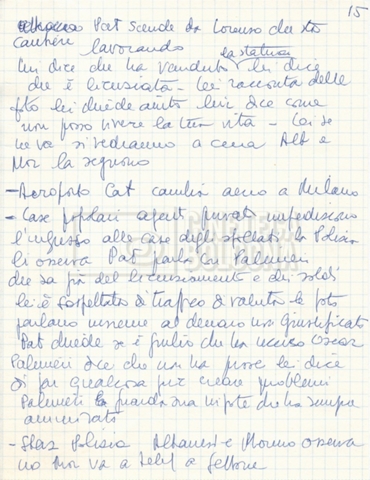 15
Pat scende da Lorenzo che sta
lavorando
la statua
lui dice che ha venduto lei dice
che è licenziata - lei racconta delle
foto lei chiede aiuto lui dice come
non posso vivere la tua vita - lei se
ne va si vedranno a cena Alb e
Mor la seguono
- Aeroporto Cat cambia aereo a Milano
- Case popolari agenti privati impediscono
l'ingresso alle case degli sfrattati la Polizia
li osserva Pat parla con Palmieri
che sa già del licenziamento e dei soldi
lei è sospettata di traffico di valuta le foto
parlano insieme al denaro non giustificato
Pat chiede se è Giulio che ha ucciso Oscar
Palmieri dice che non ha prove le dice
di far qualcosa per creare problemi
Palmieri la guarda sua nipote che ha sempre
ammirato
- Staz Polizia Albanese e Moreno osservano
Mor va a telef a gettone